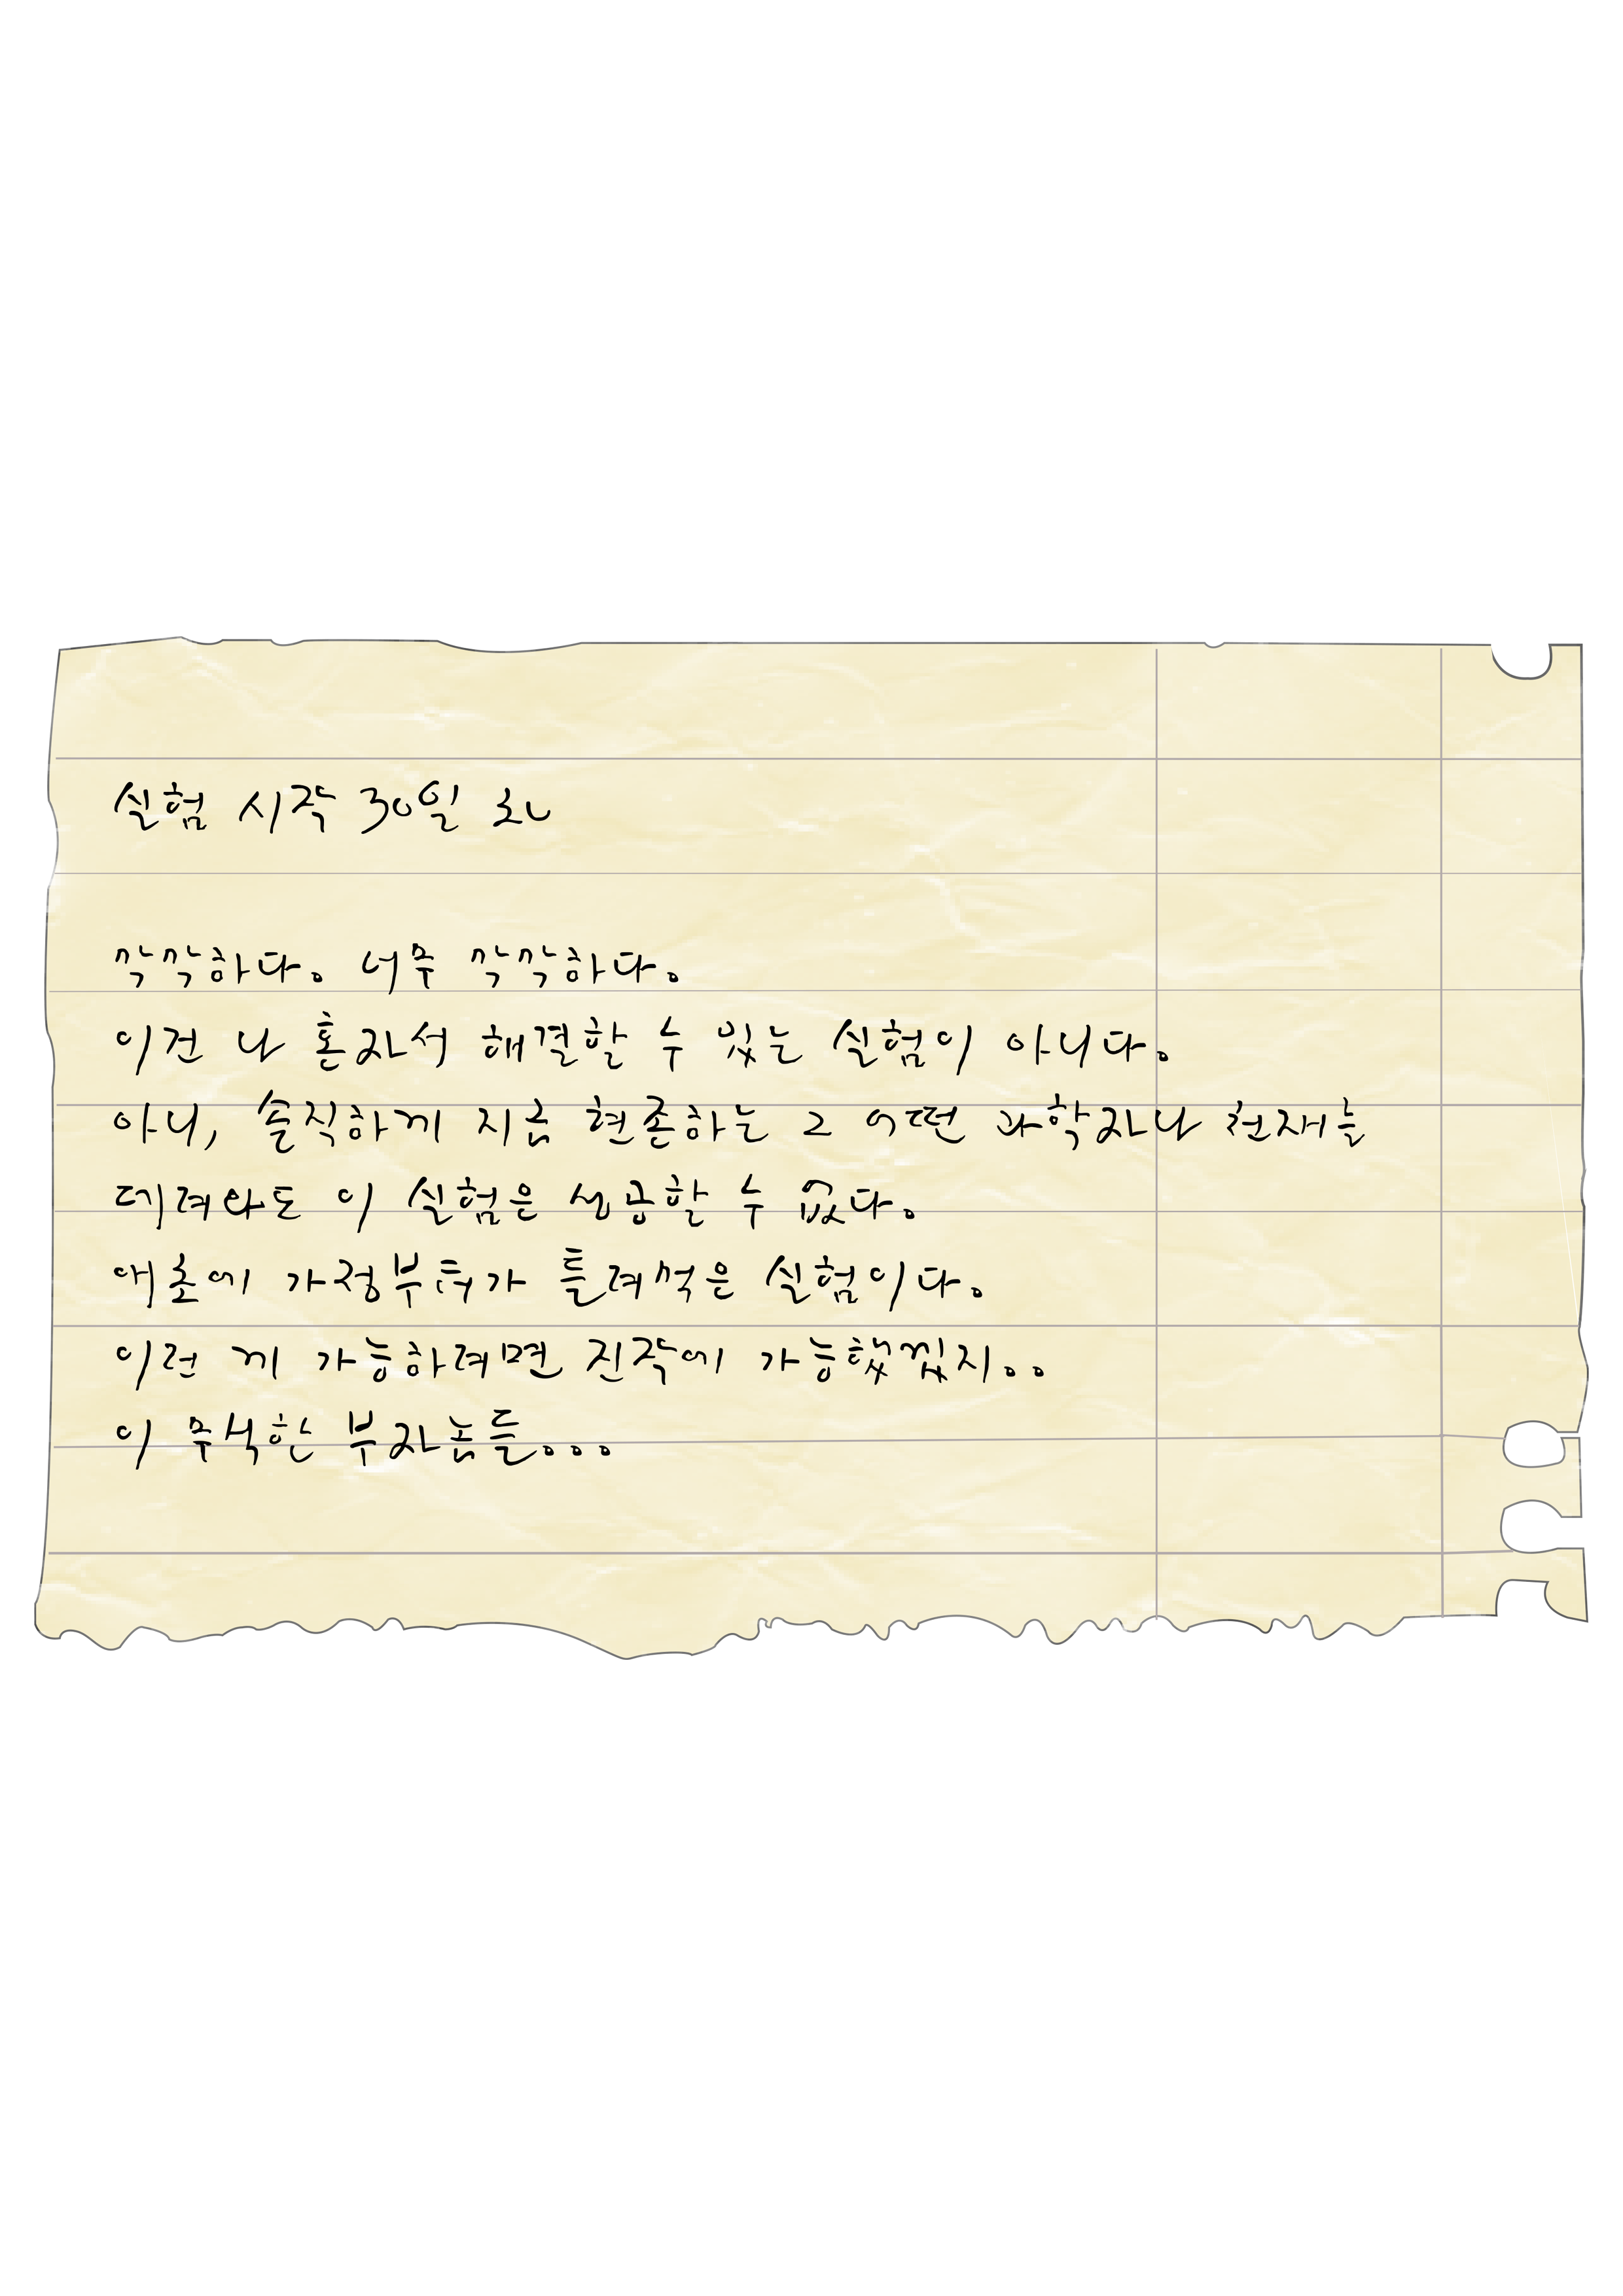 실험 시작 30일 차
막막하다. 너무 막막하다.
이건 나 혼자서 해결할 수 있는 실험이 아니다.
아니, 솔직하게 지금 현존하는 그 어떤 과학자나 천재를
데려와도 이 실험은 성공할 수 없다.
애초에 가정부터가 틀려먹은 실험이다.
이런 게 가능하려면 진작에 가능했겠지..
이 무식한 부자놈들...